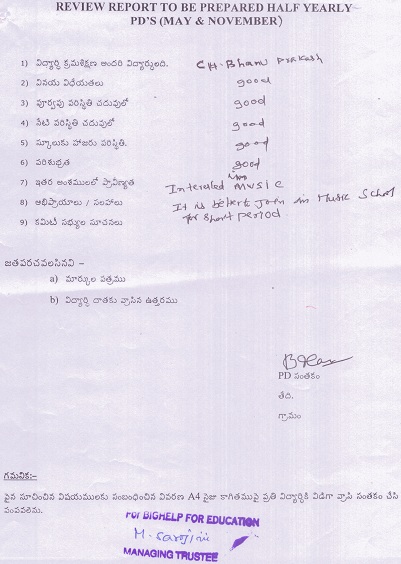 REVIEW REPORT TO BE PREPARED HALF YEARLY
PD'S (MAY & NOVEMBER)
1) విద్యార్థి క్రమశిక్షణ అందరి విద్యార్థులది. CH. Bhanu Prakash
2) వినయ విధేయతలు good
3) పూర్వపు పరిస్థితి చదువులో good
4) నేటి పరిస్థితి చదువులో good
5) స్కూలుకు హాజరు పరిస్థితి. good
6) పరిశుభ్రత good
7) ఇతర అంశములలో ప్రావీణ్యత Interested in music
8) అభిప్రాయాలు / సలహాలు It is Join in Music School
9) కమిటి సభ్యుల సూచనలు for short period
జతపరచవలసినవి –
a) మార్కుల పత్రము
b) విద్యార్థి దాతకు వ్రాసిన ఉత్తరము
PD సంతకం
తేది.
గ్రామం
గమనిక:-
పైన సూచించిన విషయములకు సంబంధించిన వివరణ A4 సైజు కాగితముపై ప్రతి విద్యార్థికి విడిగా వ్రాసి సంతకం చేసి
పంపవలెను.
For BIGHELP FOR EDUCATION
M. Sarojini
MANAGING TRUSTEE